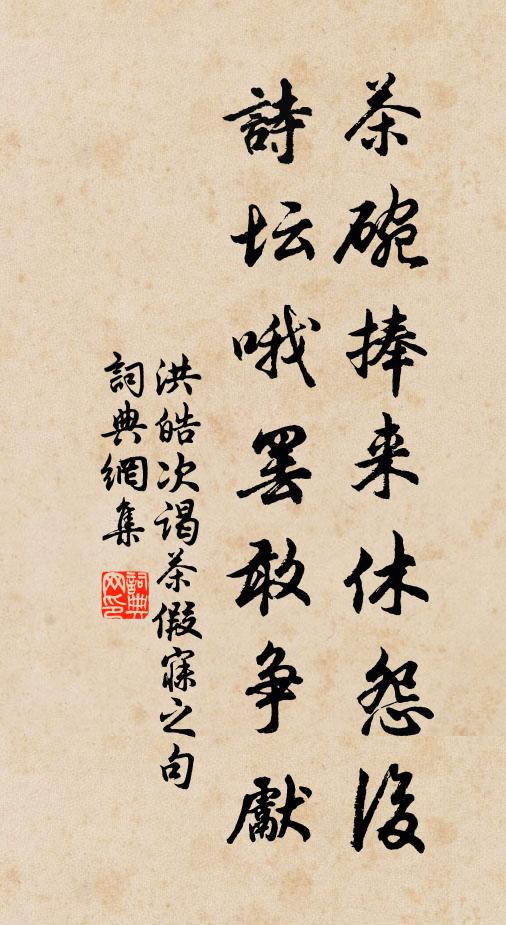 茶碗捧来休怨後
詩坛哦罢敢争獻
洪皓次谒茶假寐之句
詞典網集
詞典网印